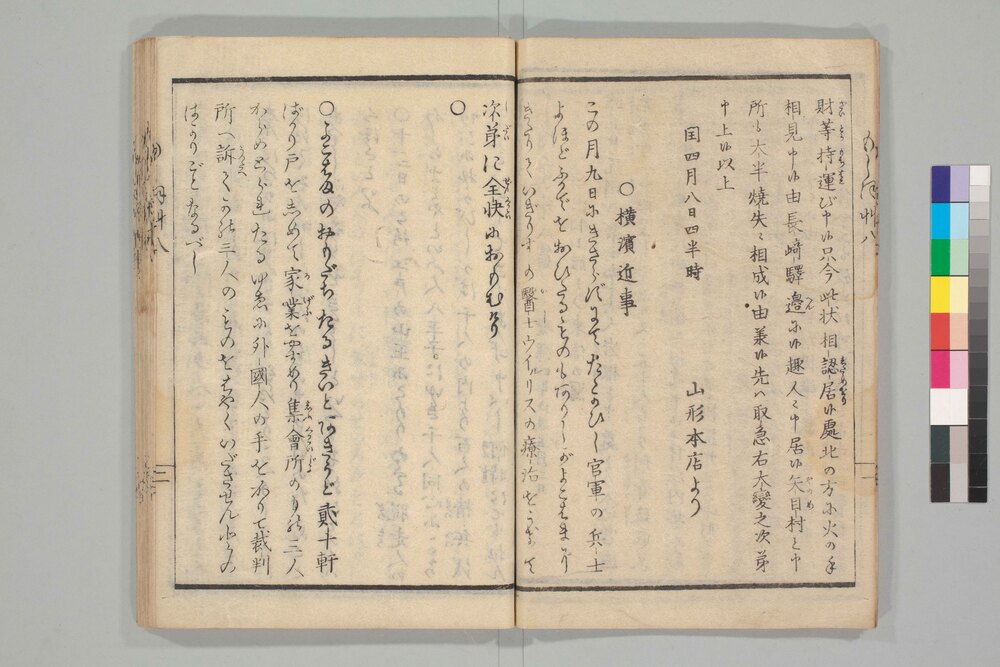 財等持運び申候只今此状相認居候處北の方に火の手
相見申候由長崎驛邊に候趣人々申居候矢目村と申
所も大半焼失に相成候由并候先は取急右大變之次第
申上候以上
閏四月八日四半時
山形本店より
〇横濱近事
この月九日に
にてたゝかひし官軍の兵士
よほどふかでをおひたるものもありしがよこはまに
きたりていぎりすの醫士ウイルリスの療治をうけて
次第に全快におもむけり
〇
〇よこはまのおりだちたるきいとあきうど貳十軒
ばかり戸をしめて家業をやめり集會所のもの三人
からめとられたるゆゑに外國人の手をかりて裁判
所へ訴へその三人のものをはやくいださせんとする
はかりごとなるべし